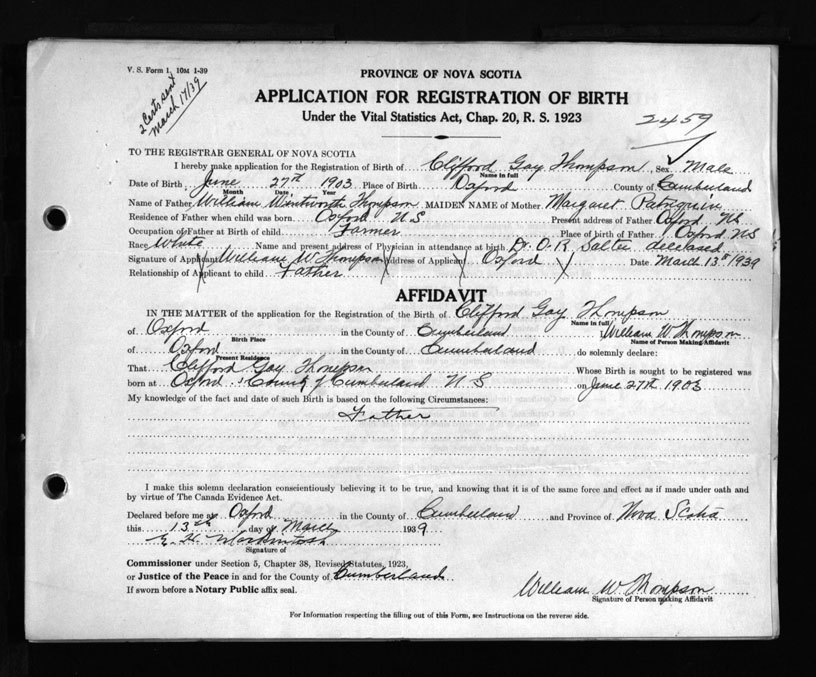 V. S. Form 1, 10M 1-39
2 Certs sent
March 17/39
PROVINCE OF NOVA SCOTIA
APPLICATION FOR REGISTRATION OF BIRTH
Under the Vital Statistics Act, Chap. 20, R. S. 1923
2459
TO THE REGISTRAR GENERAL OF NOVA SCOTIA
I hereby make application for the Registration of Birth of Clifford Gay Thompson Sex Male
Name in full
Date of Birth June 27th 1903 Place of Birth Oxford County of Cumberland
Month Date Year
Name of Father William Wentworth Thompson MAIDEN NAME of Mother Margaret Patriquin
Residence of Father when child was born Oxford N S Present address of Father Oxford NS
Occupation of Father at Birth of child Farmer Place of birth of Father Oxford NS
Race White Name and present address of Physician in attendance at birth Dr. O. R. Salter deceased
Signature of Applicant William W Thompson Address of Applicant Oxford Date March 13th 1939
Relationship of Applicant to child Father
AFFIDAVIT
IN THE MATTER of the application for the Registration of the Birth of Clifford Gay Thompson
Name in full
of Oxford in the County of Cumberland William W Thompson
Birth Place Name of Person Making Affidavit
of Oxford in the County of Cumberland do solemnly declare:
Present Residence
That Clifford Gay Thompson Whose Birth is sought to be registered was
born at Oxford County of Cumberland N S on June 27th 1903
My knowledge of the fact and date of such Birth is based on the following Circumstances:
Father
I make this solemn declaration conscientiously believing it to be true, and knowing that it is of the same force and effect as if made under oath and
by virtue of The Canada Evidence Act.
Declared before me at Oxford in the County of Cumberland and Province of Nova Scotia
this 13th day of March 1939
Signature of
Commissioner under Section 5, Chapter 38, Revised Statutes, 1923,
or Justice of the Peace in and for the County of Cumberland
If sworn before a Notary Public affix seal.
William W Thompson
Signature of Person making Affidavit
For Information respecting the filling out of this Form, see Instructions on the reverse side.